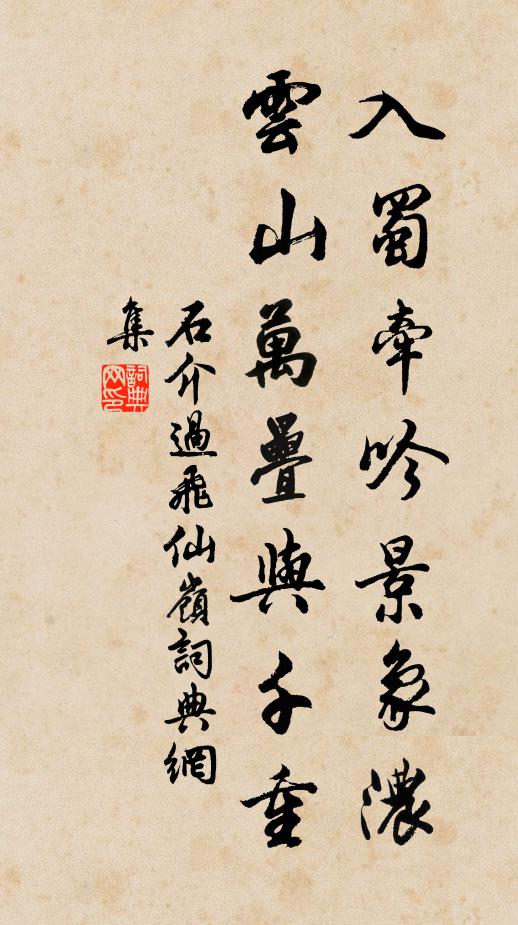 入蜀牽吟景象濃
雲山萬疊與千重
石介過飛仙嶺詞典網
集
詞典网印